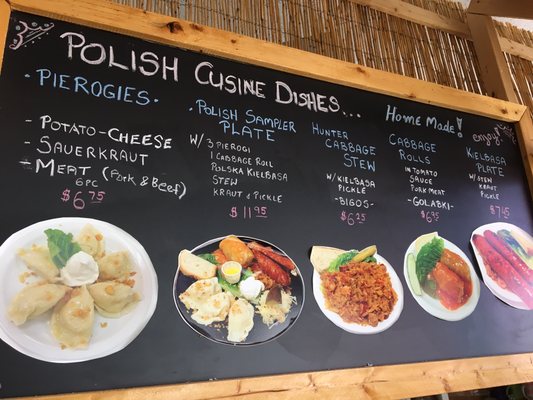 Polish Cusine Dishes...
Home Made!
enjoy!
· Pierogies ·
- Potato-Cheese
- Sauerkraut
- Meat (Pork & Beef)
6pc
$6.75
· Polish Sampler Plate
w/ 3 Pierogi
1 Cabbage Roll
Polska Kielbasa
Stew
Kraut & Pickle
$11.95
Hunter
Cabbage
Stew
w/ Kielbasa
Pickle
-Bigos-
$6.25
Cabbage
Rolls
in Tomato
Sauce
Pork Meat
-Golabki-
$6.95
Kielbasa
Plate
w/ Stew
Kraut
Pickle
$7.45